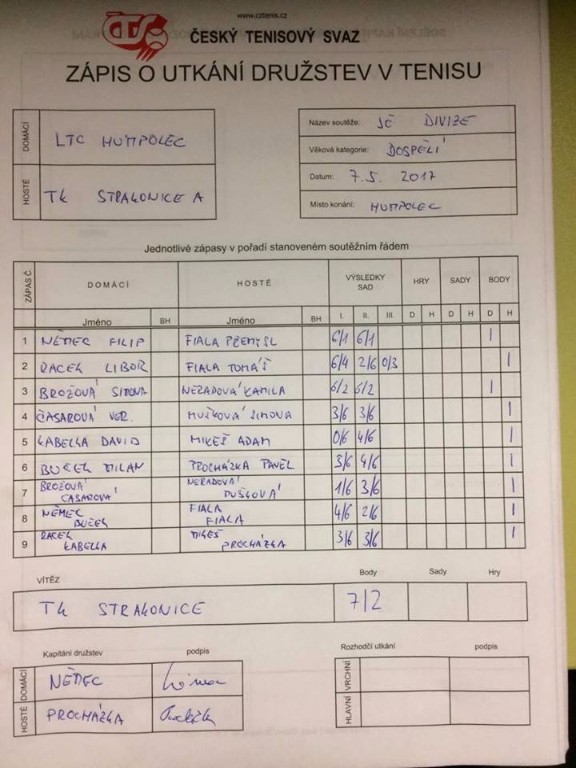 www.cztenis.cz
ČTS
ČESKÝ TENISOVÝ SVAZ
ZÁPIS O UTKÁNÍ DRUŽSTEV V TENISU
DOMÁCÍ LTC HUMPOLEC
HOSTÉ TK STRAKONICE A
Název soutěže: JČ DIVIZE
Věková kategorie: DOSPĚLÍ
Datum: 7.5. 2017
Místo konání: HUMPOLEC
Jednotlivé zápasy v pořadí stanoveném soutěžním řádem
ZÁPAS Č. DOMÁCÍ HOSTÉ VÝSLEDKY SAD HRY SADY BODY
Jméno BH Jméno BH I. II. III. D H D H D H
1 NĚMEC FILIP FIALA PŘEMYSL 6/1 6/1 1
2 RACEK LIBOR FIALA TOMÁŠ 6/4 2/6 0/3 1
3 BROŽOVÁ SIMONA NERADOVÁ KAMILA 6/2 6/2 1
4 ČASAROVÁ VER. SIMONA 3/6 3/6 1
5 LABELLA DAVID MIKEŠ ADAM 0/6 4/6 1
6 MILAN PROCHÁZKA PAVEL 3/6 4/6 1
7 BROŽOVÁ ČASAROVÁ NERADOVÁ 1/6 3/6 1
8 NĚMEC FIALA FIALA 4/6 2/6 1
9 RACEK LABELLA MIKEŠ PROCHÁZKA 3/6 3/6 1
VÍTĚZ Body Sady Hry
TK STRAKONICE 7/2
Kapitáni družstev podpis
DOMÁCÍ NĚMEC
HOSTÉ PROCHÁZKA
Rozhodčí utkání podpis
VRCHNÍ
HLAVNÍ